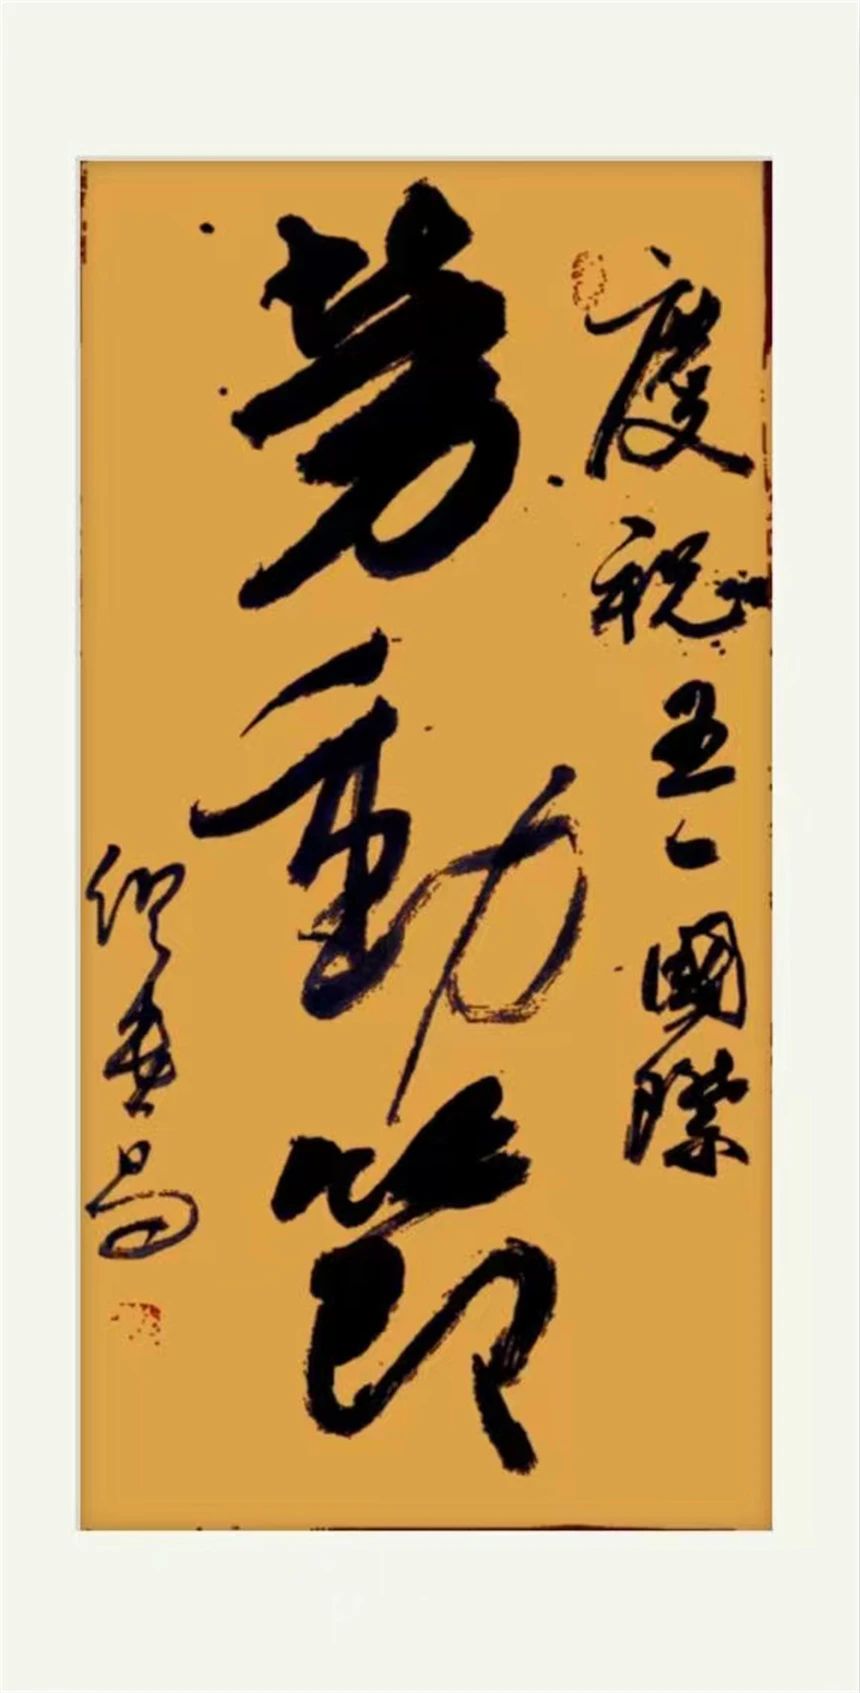 慶祝五一國際
勞動節